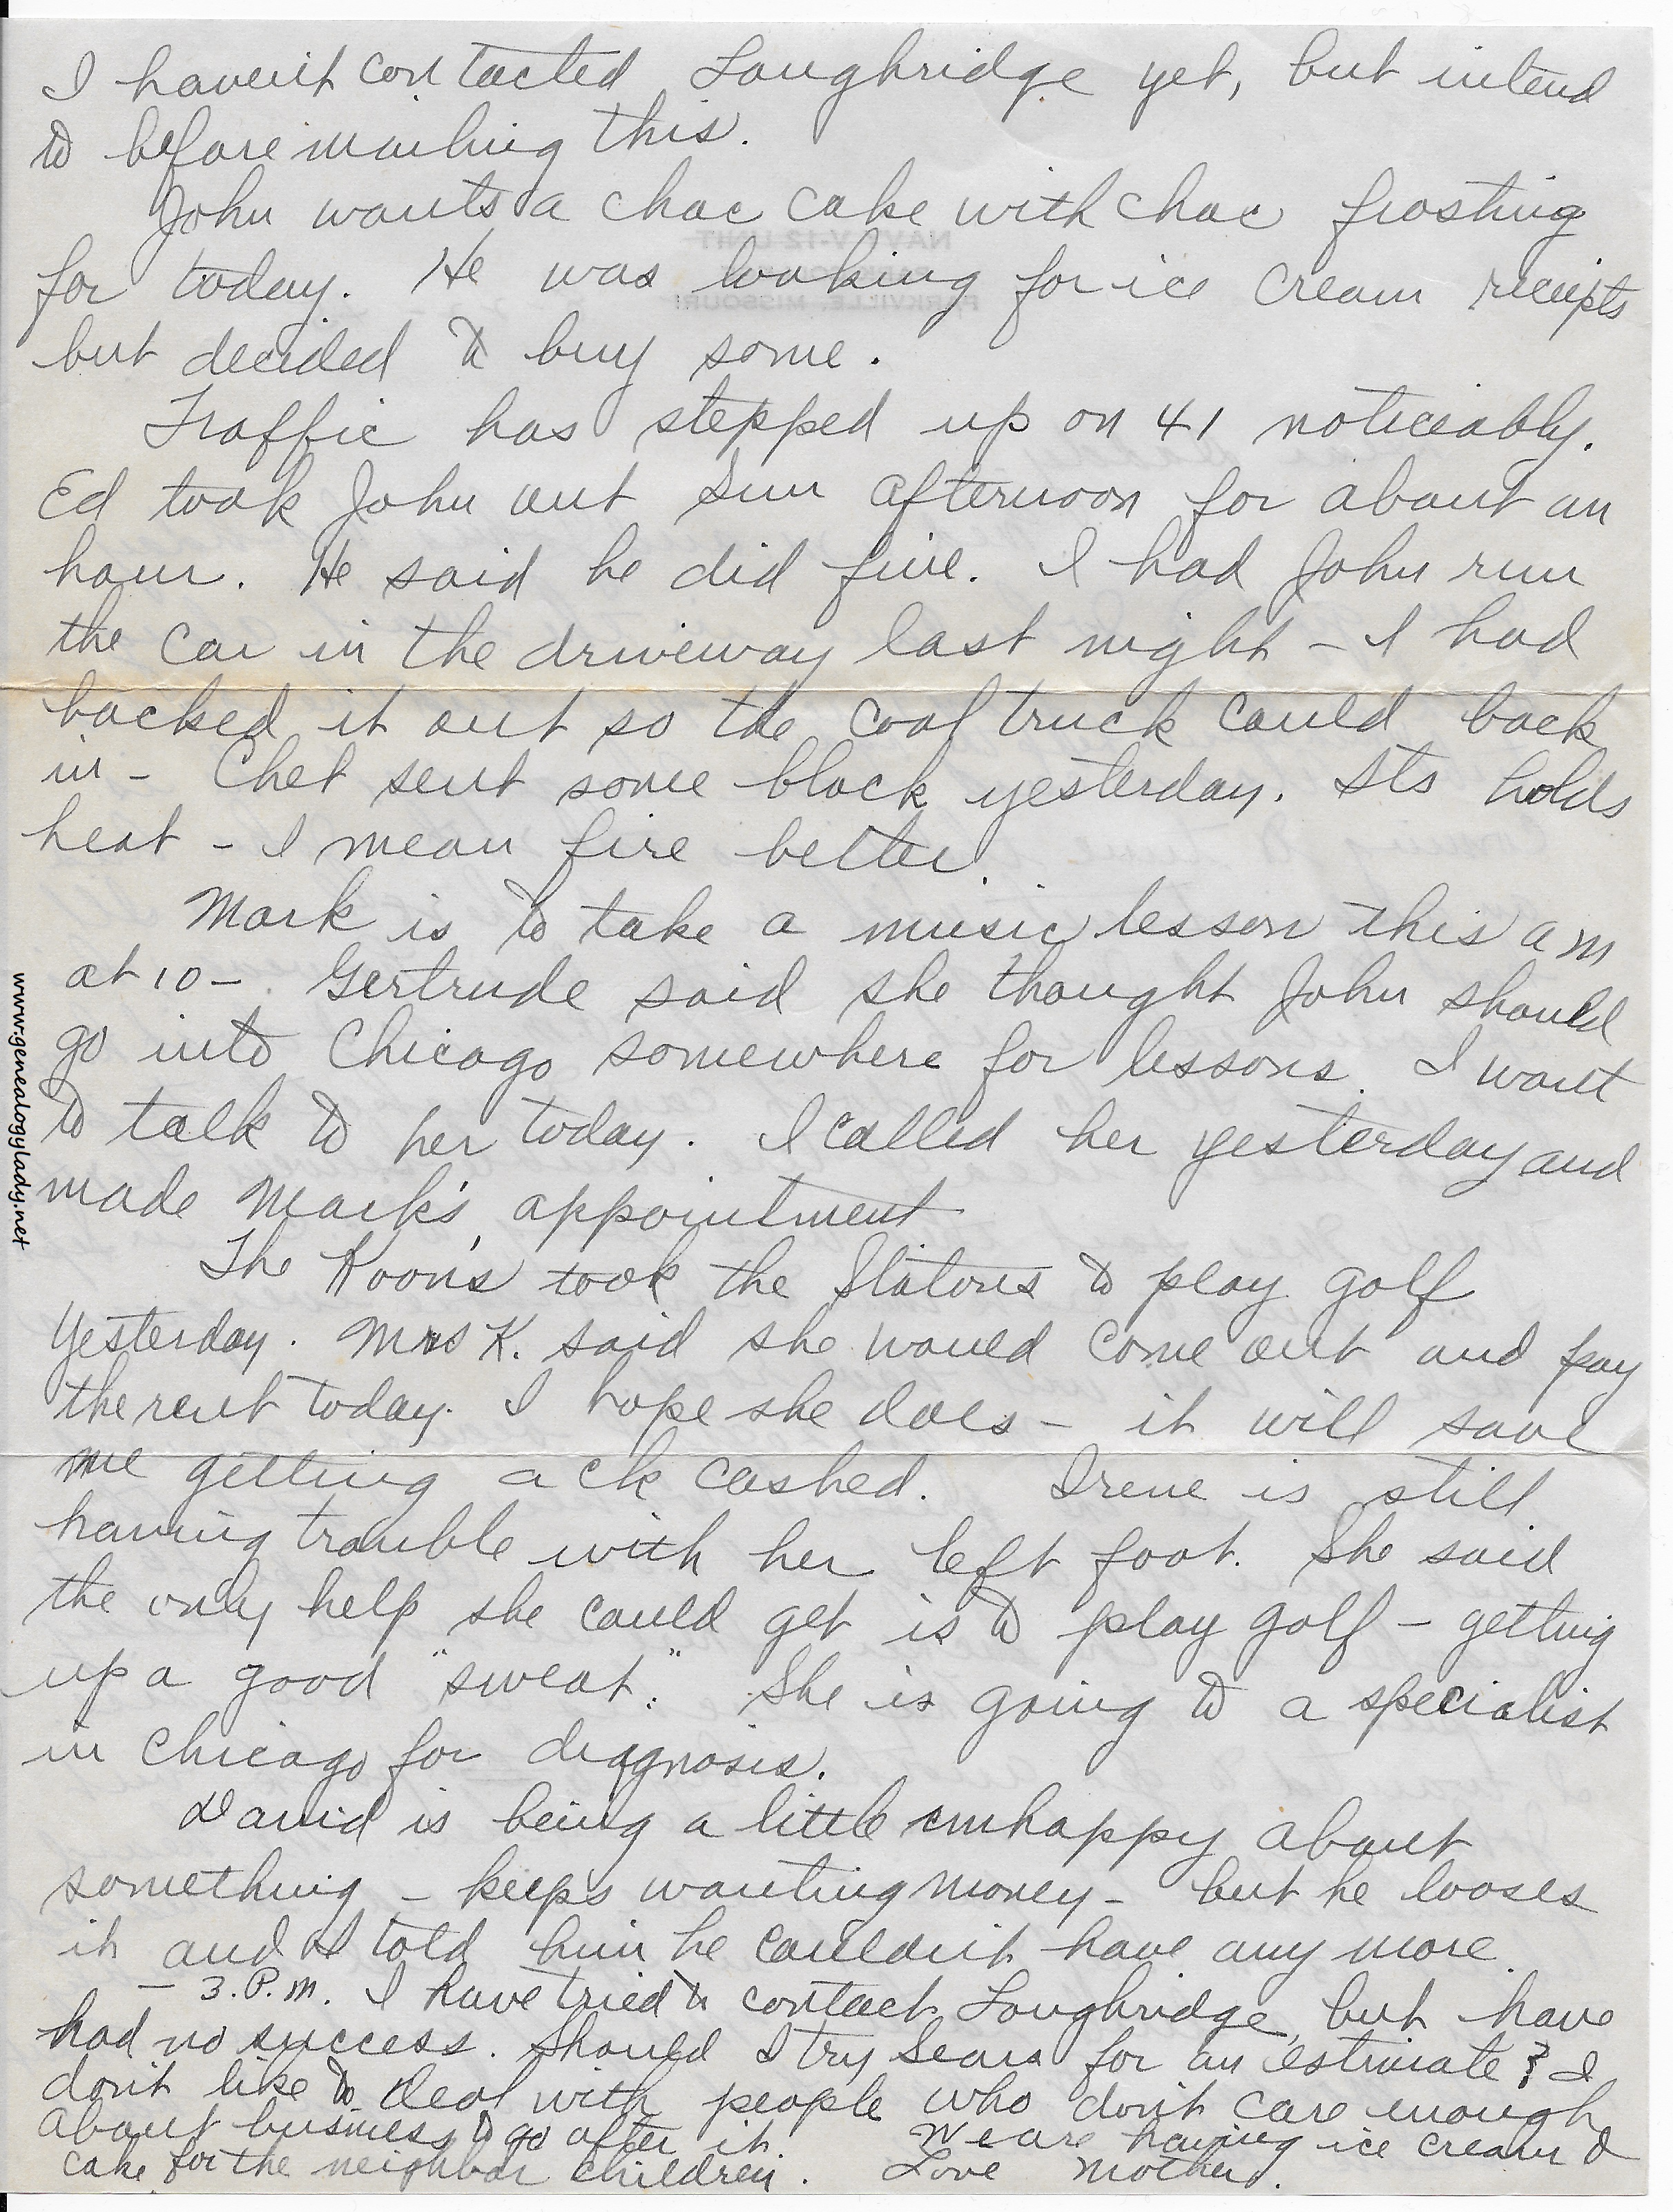 I haven't contacted Loughridge yet, but intend
to before mailing this.
John wants a choc cake with choc frosting
for today. He was looking for ice cream receipts
but decided to buy some.
Traffic has stepped up on 41 noticeably.
Ed took John out Sun afternoon for about an
hour. He said he did fine. I had John run
the car in the driveway last night - I had
backed it out so the coal truck could back
in - Chet sent some block yesterday. Its holds
heat - I mean fire better.
Mark is to take a music lesson this a m
at 10 - Gertrude said she thought John should
go into Chicago somewhere for lessons. I want
to talk to her today. I called her yesterday and
made Mark's appointment
The Koons took the Slatons to play golf
yesterday. Mrs K. said she would come out and pay
the rent today. I hope she does - it will save
me getting a ck cashed. Irene is still
having trouble with her left foot. She said
the only help she could get is to play golf - getting
up a good "sweat." She is going to a specialist
in Chicago for diagnosis.
David is being a little unhappy about
something - keeps wanting money - but he looses
it and I told him he couldn't have any more.
- 3. P.M. I have tried to contact Loughridge, but have
had no success. Should I try Sears for an estimate? I
don't like to deal with people who don't care enough
about business to go after it. We are having ice cream &
cake for the neighbor children. Love Mother.
NAVY V-12 UNIT
PARKVILLE, MISSOURI
www.genealogylady.net